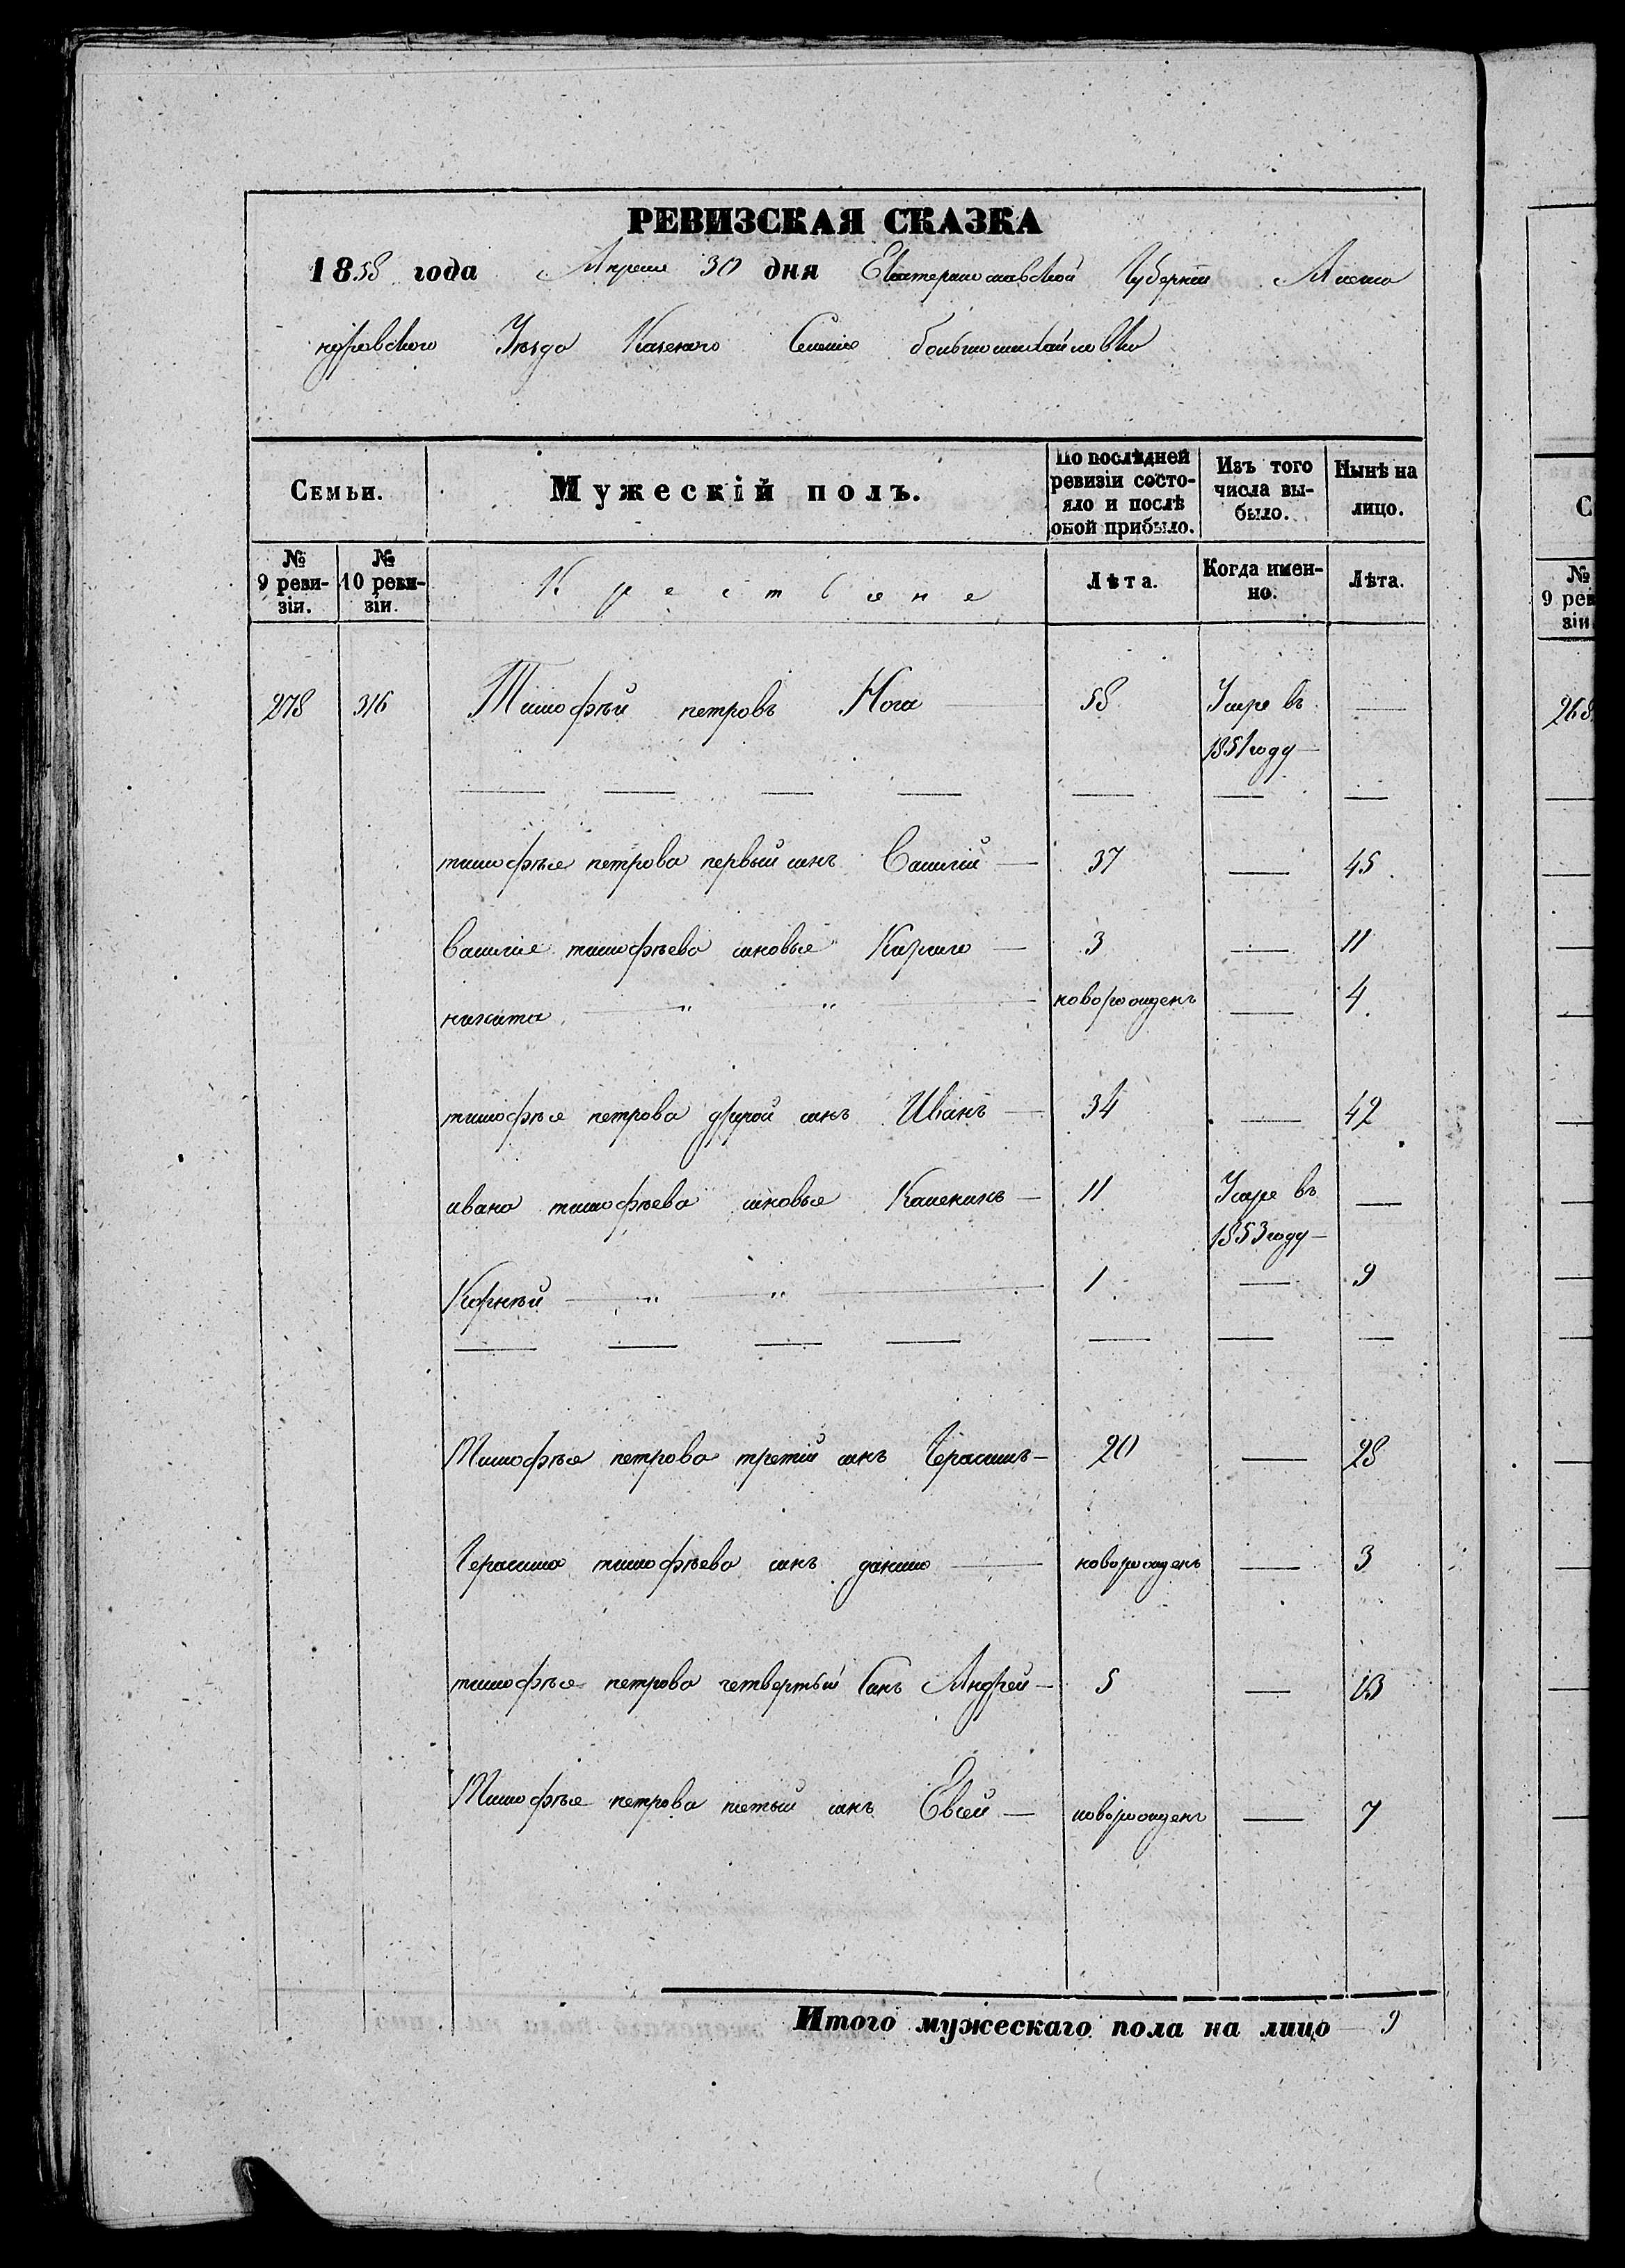 РЕВИЗСКАЯ СКАЗКА
1858 года Апреля 30 дня Екатеринославской Губернiи Алекса
ндровского Уѣзда Казенного Селенiя большомихайловки
Семьи.
Мужескiй полъ.
По послѣдней ревизiи состояло и послѣ оной прибыло.
Изъ того числа выбыло.
Нынѣ на лицо.
№ 9 ревизiи.
№ 10 ревизiи.
Крестьяне
Лѣта.
Когда именно.
Лѣта.
278 316 Тимофѣй петровъ Нога — 58 Умре въ —
1851 году —
тимофѣя петрова первый синъ Василiй — 37 — 45
Василiя тимофѣева синовья Кирило — 3 — 11
никита — " — " — новорожденъ — 4
тимофѣя петрова другой синъ Иванъ — 34 — 42
ивана тимофѣева синовья — 11 Умре въ —
1853 году —
Корнѣй — " — " — 1 — 9
Тимофѣя петрова третiй синъ Герасимъ — 20 — 28
Герасима тимофѣева синъ данило — новорожденъ — 3
тимофѣя петрова четвертый Синъ Андрей — 5 — 13
Тимофѣя петрова пятый синъ Евсей — новорожденъ — 7
Итого мужескаго пола на лицо — 9
С
№
9 рев
зiи
268